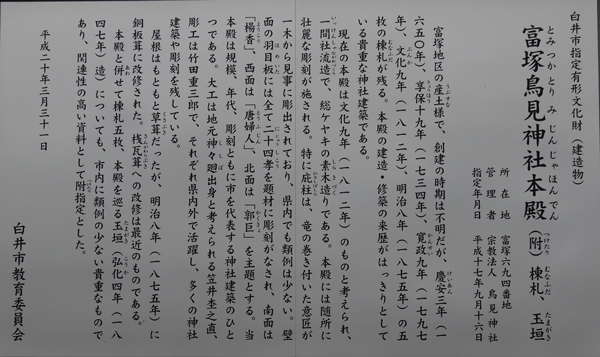 白井市指定有形文化財（建造物）
とみつかとりみじんじゃほんでん
富塚鳥見神社本殿（附）棟札、玉垣
つけたり むなふだ たまがき
所在地 富塚六九四番地
管理者 宗教法人 鳥見神社
指定年月日 平成十七年九月十六日
富塚地区の産土様で、創建の時期は不明だが、慶安三年（一
六五〇年）、享保十九年（一七三四年）、寛政九年（一七九七
年）、文化九年（一八一二年）、明治八年（一八七五年）の五
枚の棟札が残る。本殿の建造・修築の来歴がはっきりとして
いる貴重な神社建築である。
現在の本殿は文化九年（一八一二年）のものと考えられ、
一間社流造で、総ケヤキの素木造りである。本殿には随所に
壮麗な彫刻が施される。特に庇柱は、竜の巻き付いた意匠が
一木から見事に彫出されており、県内でも類例は少ない。壁
面の羽目板には全て二十四孝を題材に彫刻がなされ、南面は
「楊香」、西面は「唐婦人」、北面は「郭巨」を主題とする。当
本殿は規模、年代、彫刻ともに市を代表する神社建築のひと
つである。大工は地元神々廻出身と考えられる笠井杢之直、
彫工は竹田重三郎で、それぞれ県内外で活躍し、多くの神社
建築や彫刻を残している。
屋根はもともと草葺だったが、明治八年（一八七五年）に
銅板葺に改修された。桟瓦葺への改修は最近のものである。
本殿と併せて棟札五枚、本殿を巡る玉垣（弘化四年（一八
四七年）造）についても、市内に類例の少ない貴重なもので
あり、関連性の高い資料として附指定とした。
平成二十年三月三十一日
白井市教育委員会